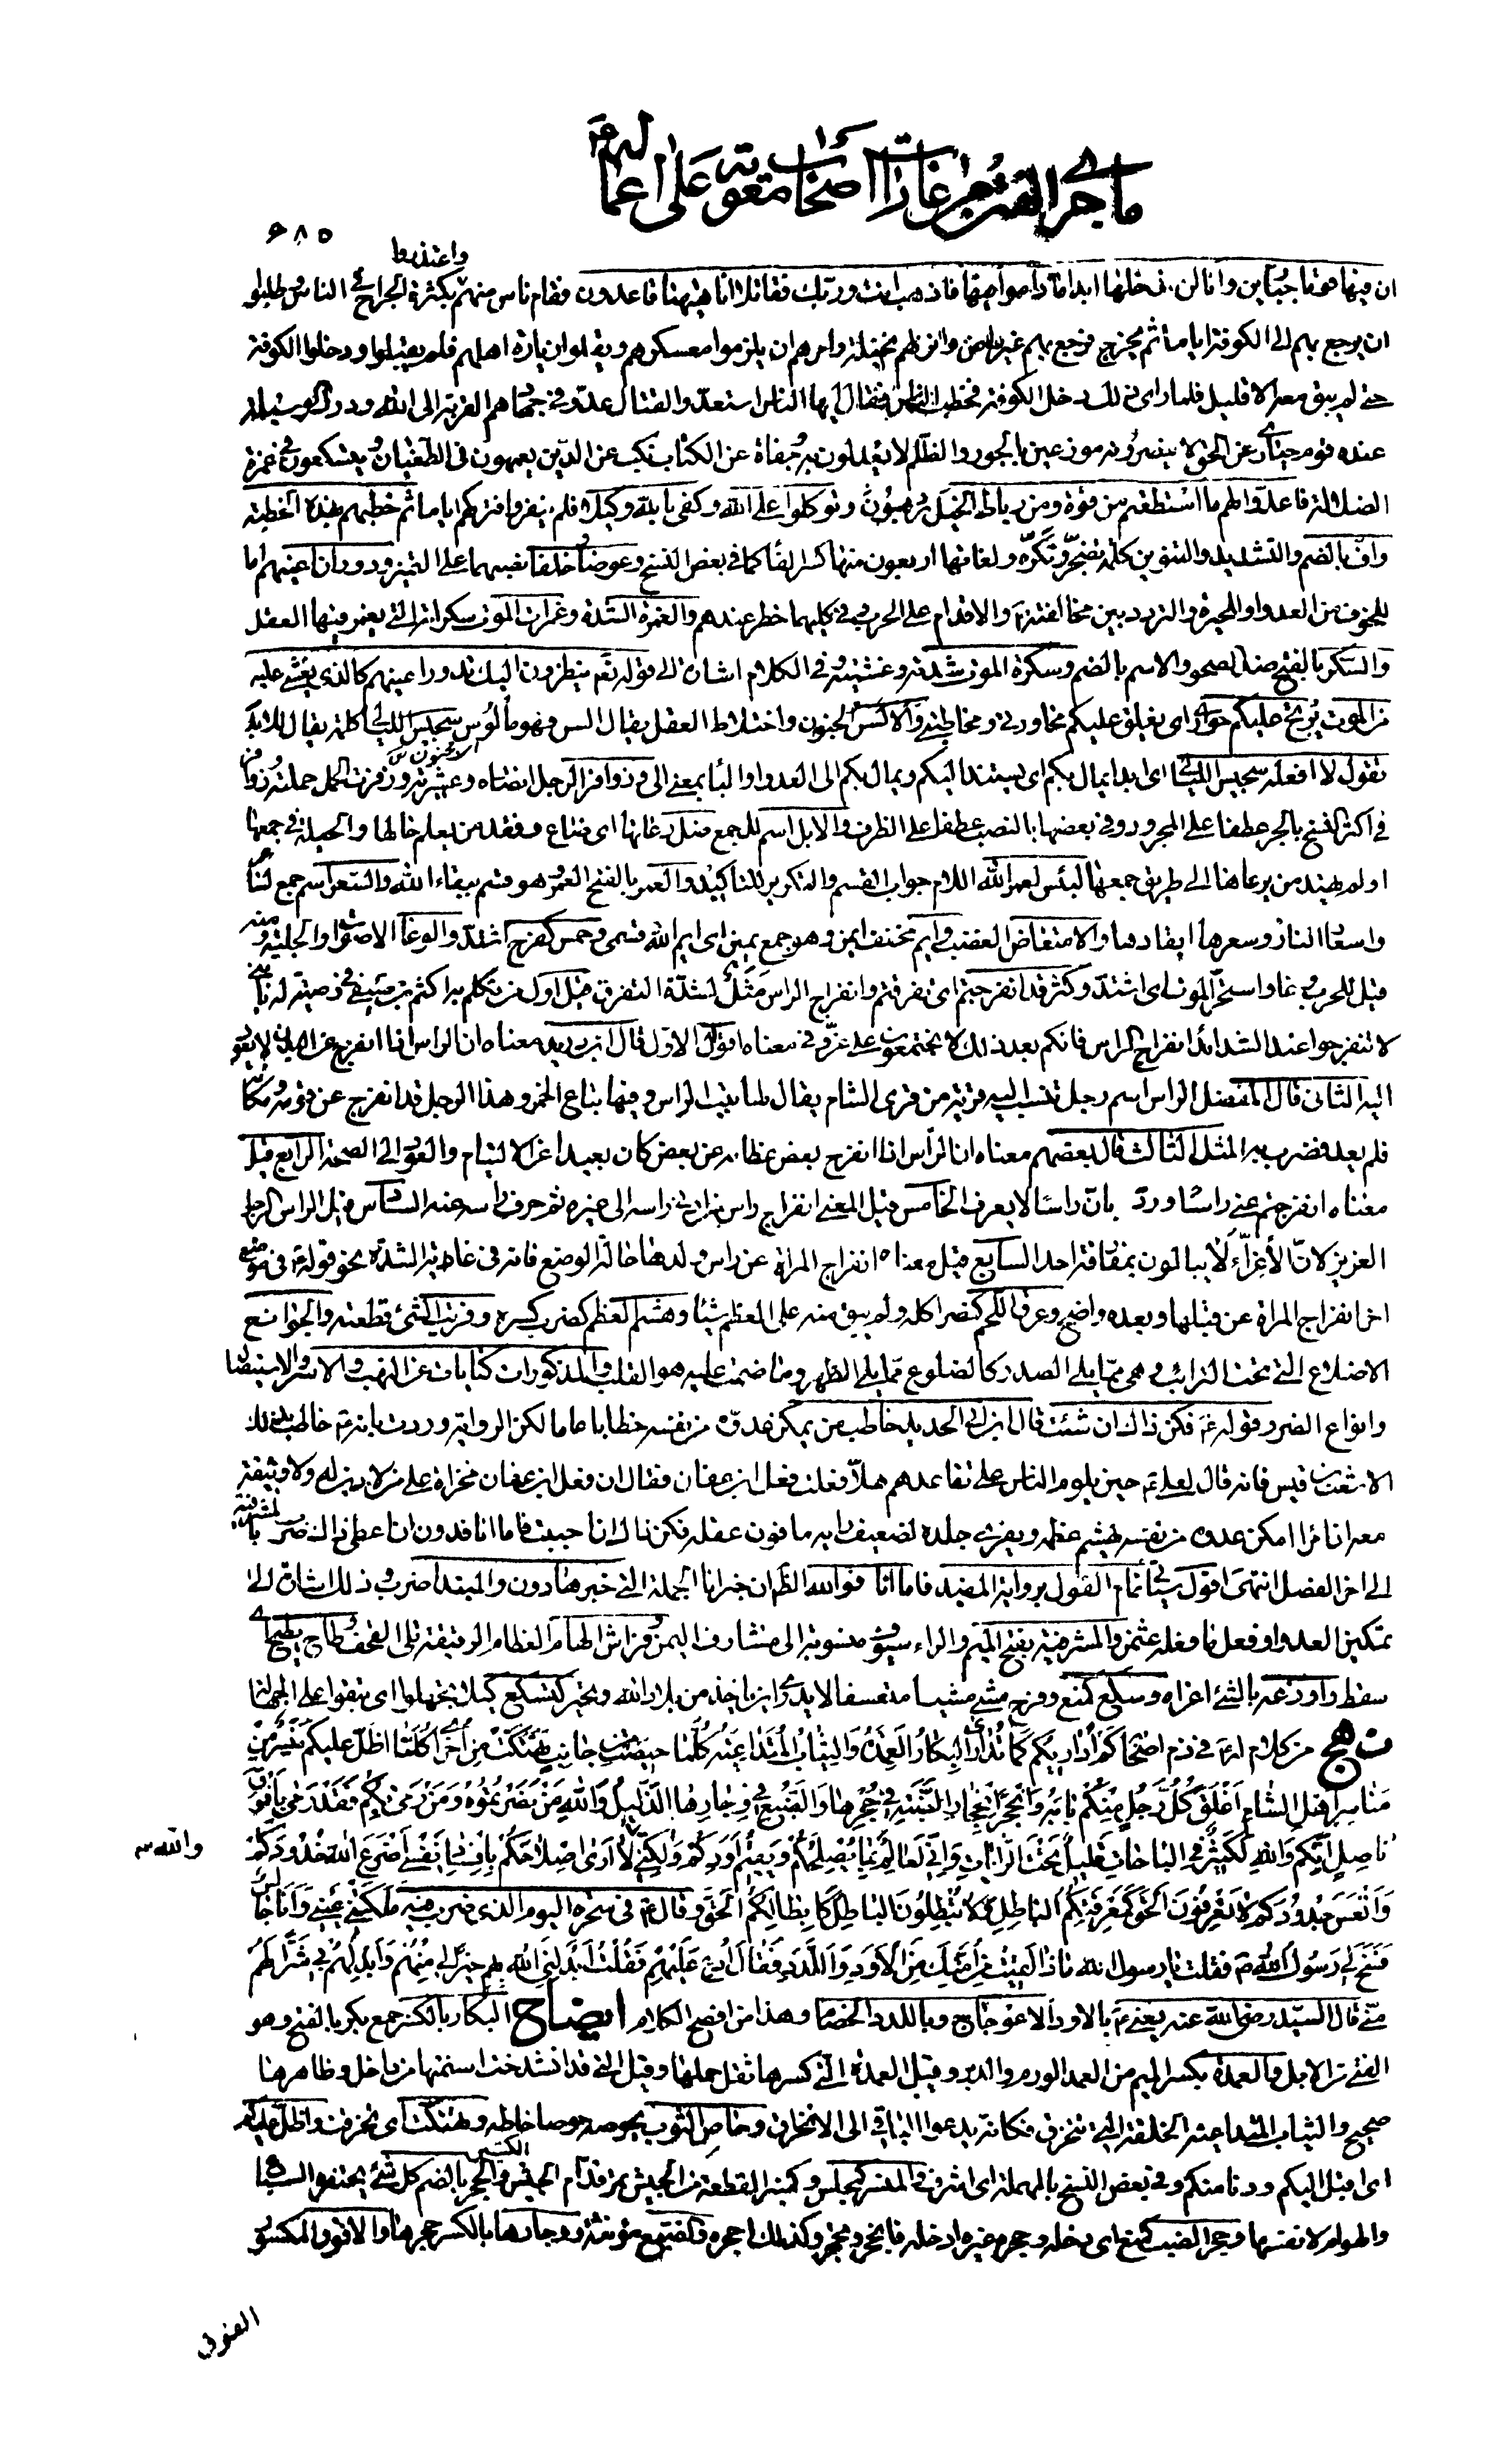 ما جرى من الفتن من غارات أصحاب معوية على أعماله ع
۶۸۵
واعتذروا
ان فيها قوما جبارين وانا لن ندخلها ابدا ما داموا فيها فاذهب انت وربك فقاتلا انا ههنا قاعدون فقام ناس منهم بكثرة الجراح في الناس وطلبوا
ان يرجع بهم الى الكوفة اياما ثم يخرج فرجع بهم غير راض وانزلهم نخيلة وامرهم ان يلزموا معسكرهم ويقلوا زيارة اهلهم فلم يقبلوا ودخلوا الكوفة
حتى لم يبق معه الا قليل فلما راى ذلك دخل الكوفة فخطب الناس فقال ايها الناس استعدوا لقتال عدو في جهادهم القربة الى الله ودرك الوسيلة
عنده قوم حيارى عن الحق لا ينصرونه موزعين بالجور والظلم لا يعدلون به جفاة عن الكتاب نكب عن الدين يعمهون في الطغيان ويتسكعون في غمرة
الضلالة فاعدوا لهم ما استطعتم من قوة ومن رباط الخيل ترهبون وتوكلوا على الله وكفى بالله وكيلا فلم ينفروا فتركهم اياما ثم خطبهم هذه الخطبة
واف بالضم والتشديد والتنوين كلمة تضجر وتكره ولغاتها اربعون منها كسر الفا كما في بعض النسخ وعوضا وخلفا نصبهما على التميز ودوران اعينهم اما
للخوف من العدو او للحيرة والتردد بين مخالفته ع والاقدام على الحرب وفي كليهما خطر عندهم والغمرة الشدة وغمرات الموت سكراته التي يغمر فيها العقل
والسكر بالفتح ضد الصحو والاسم بالضم وسكرة الموت شدته وغشيته وفي الكلام اشارة الى قوله تع ينظرون اليك تدور اعينهم كالذي يغشى عليه
من الموت يرتج عليكم حواري اي يغلق عليكم محاورتي ومخاطبتي والالس الجنون واختلاط العقل يقال الس فهو مالوس سجيس الليالي كلمة يقال للابد
تقول لا افعله سجيس الليالي اي ابدا يمال بكم اي يستند اليكم ويمال بكم الى العدو والبا بمعنى الى وزوافر الرجل انصاره وعشيرته وزفرت الحمل حملته وزوافر
في اكثر النسخ بالجر عطفا على المجرور وفي بعضها بالنصب عطفا على الظرف والابل اسم للجمع وضل رعاتها اي ضاع وفقد من يعلم حالها والحيلة في جمعها
او لم يهتد من يرعاها الى طريق جمعها لبئس لعمر الله اللام جواب القسم والتكرير للتاكيد والعمر بالفتح العمر وهو قسم ببقاء الله والسعر اسم جمع
واسعار النار وسعرها ايقادها والامتعاض الغضب وايم مخفف ايمن وهو جمع يمين اي ايم الله قسمي وحمس كفرح اشتد والوغا الاصوات والجلبة ومنه
قيل للحرب وغا واستحر الموت اي اشتد وكثر قد انفرجتم اي تفرقتم وانفراج الراس مثل لشدة التفرق قيل اول من تكلم به اكثم بن صيفي في وصية له يا بني
لا تنفرجوا عند الشدائد انفراج الراس فانكم بعد ذلك لا تجتمعون على عز وفي معناه اقوال الاول قال ابن دريد معناه ان الراس اذا انفرج عن البدن لا يعود
اليه الثاني قال المفضل الراس اسم رجل تنسب اليه قرية من قرى الشام يقال لها بيت الراس وفيها تباع الخمر وهذا الرجل قد انفرج عن قومه ومكانه
فلم يعد فضرب به المثل الثالث قال بعضهم معناه ان الراس اذا انفرج بعض عظامه عن بعض كان بعيدا عن الالتيام والعود الى الصحة الرابع قيل
معناه انفرجتم عني راسا ورد بان راسا لا يعرف الخامس قيل المعنى انفراج راس من ادنى راسه الى غيره ثم حرف راسه عنه السادس قيل الراس الرجل
العزيز لان الأعزاء لا يبالون بمفارقة احد السابع قيل معناه انفراج المراة عن راس ولدها حالة الوضع فانه في غاية الشدة نحو قوله ع في موضع
اخر انفراج المراة عن قبلها وبعده واضح وعرق اللحم كنصر اكله ولم يبق منه على العظم شيئا وهشم العظم كضرب كسره وفريت الشئ قطعته والجوانح
الاضلاع التي تحت الترائب وهي مما يلي الصدر كالضلوع مما يلي الظهر وما ضمت عليه هو القلب والمذكورات كنايات عن النهب والاسر والاستيصال
وانواع الضرر وقوله ع فكن ذاك ان شئت قال ابن ابي الحديد خاطب من يمكن عدوه من نفسه خطابا عاما لكن الرواية وردت بانه ع خاطب بذلك
الاشعث بن قيس فانه قال لعلي ع حين يلوم الناس على تقاعدهم هلا فعلت فعل ابن عفان فقال ان فعل ابن عفان مخزاة على من لا دين له ولا وثيقة
معه ان امرا امكن عدوه من نفسه يهشم عظمه ويفري جلده لضعيف رايه مافون عقله فكن ذاك ان احببت فاما انا فدون ان اعطي ذاك ضرب بالمشرفية
الى اخر الفصل انتهى اقول سياتي تمام القول برواية المفيد فاما انا فوالله الظ ان خبر انا الجملة التي خبرها دون والمبتدا ضرب وذلك اشارة الى
تمكين العدو او فعل ما فعله عثمن والمشرفية بفتح الميم والراء سيوف منسوبة الى مشارف اليمن وفراش الهام العظام الرقيقة تلي القحف وطاح يطيح
سقط واوزعه بالشئ اغراه وسكع كمنع وفرح مشى مشيا متعسفا لا يدري اين ياخذ من بلاد الله وتحير كتسكع كيلا تجهلوا اي تبقوا على الجهالة
نهج من كلام له ع في ذم اصحابه كم أداريكم كما تدارى البكار العمدة والثياب المتداعية كلما حيصت من جانب تهتكت من آخر أكلما اظل عليكم منسر من
مناسر اهل الشام أغلق كل رجل منكم بابه وانجحر انجحار الضبة في جحرها والضبع في وجارها الذليل والله من نصرتموه ومن رمى بكم فقد رمى بافوق
ناصل انكم والله لكثير في الباحات قليل تحت الرايات واني لعالم بما يصلحكم ويقيم اودكم ولكني لا أرى اصلاحكم بافساد نفسي أضرع الله خدودكم
والله
وأتعس جدودكم لا تعرفون الحق كمعرفتكم الباطل ولا تبطلون الباطل كابطالكم الحق وقال ع في سحرة اليوم الذي ضرب فيه ملكتني عيني وأنا جالس
فسنح لي رسول الله ص فقلت يا رسول الله ماذا لقيت من أمتك من الأود واللدد فقال ادع عليهم فقلت أبدلني الله بهم خيرا لي منهم وأبدلهم بي شرا لهم
مني قال السيد رضي الله عنه يعني ع بالاود الاعوجاج وباللدد الخصام وهذا من افصح الكلام ايضاح البكار بالكسر جمع بكر بالفتح وهو
الفتى من الابل والعمدة بكسر الميم من العمد الورم والدبر وقيل العمدة التي كسرها ثقل حملها وقيل التي قد انشدخت اسنمتها من داخل وظاهرها
صحيح والثياب المتداعية الخلقة التي تنخرق فكانه يدعو الباقي الى الانخراق وحاص الثوب يحوصه حوصا خاطه وتهتكت اي تخرقت واظل عليكم
اي اقبل اليكم ودنا منكم وفي بعض النسخ بالمهملة اي اشرف والمنسر كمجلس وكمنبر القطعة من الجيش تمر قدام الجيش الكثير والجحر بالضم كل شئ يحتفره السباع
والهوام لانفسها وجحر الضب كمنع اي دخله وجحره غيره ادخله فانجحر وتجحر وكذلك اجحره والضبع مؤنثة ووجارها بالكسر جحرها والافوق المكسور
الفوق